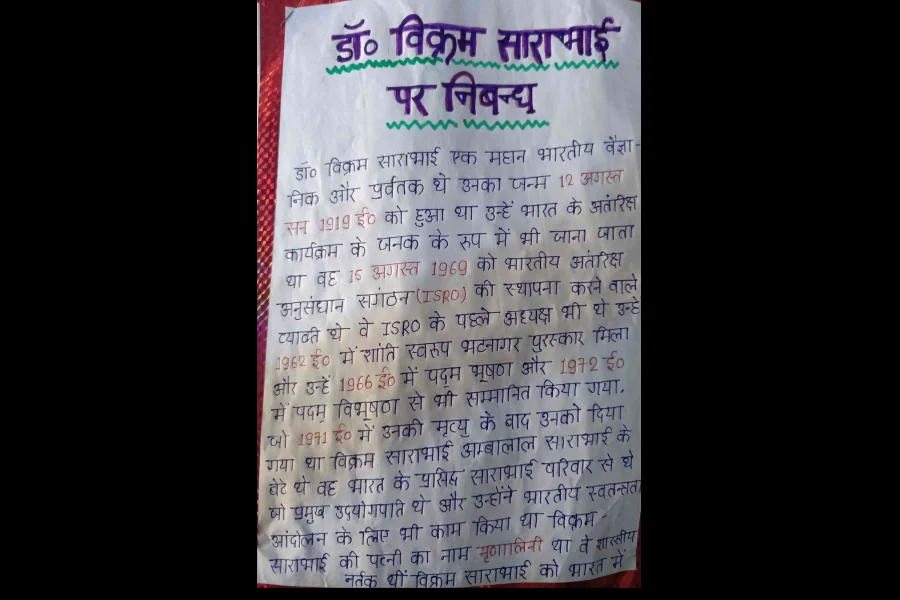 डॉ० विक्रम साराभाई
पर निबन्ध
डॉ० विक्रम साराभाई एक महान भारतीय वैज्ञा-
निक और पुर्वतक थे उनका जन्म 12 अगस्त
सन 1919 ई० को हुआ था उन्हें भारत के अतंरिक्ष
कार्यक्रम के जनक के रूप में भी जाना जाता
था वह 15 अगस्त 1969 को भारतीय अतंरिक्ष
अनुसंधान सगंठन (ISRO) की स्थापना करने वाले
व्याक्ती थे वे ISRO के पहले अध्यक्ष भी थे उन्हे
1962 ई० में शांति स्वरुप भटनागर पुरस्कार मिला
और उन्हें 1966 ई० में पद्म भूषण और 1972 ई०
में पद्म विभूषण से भी सम्मानित किया गया.
जो 1971 ई० में उनकी मृत्यु के बाद उनको दिया
गया था विक्रम साराभाई अम्बालाल साराभाई के
बेटे थे वह भारत के प्रसिद्ध साराभाई परिवार से थे
जो प्रमुख उदयोगपति थे और उन्होंने भारतीय स्वतन्त्रता
आंदोलन के लिए भी काम किया था विक्रम
साराभाई की पत्नी का नाम मृणालिनी था वे शास्त्रीय
नर्तक थीं विक्रम साराभाई को भारत में